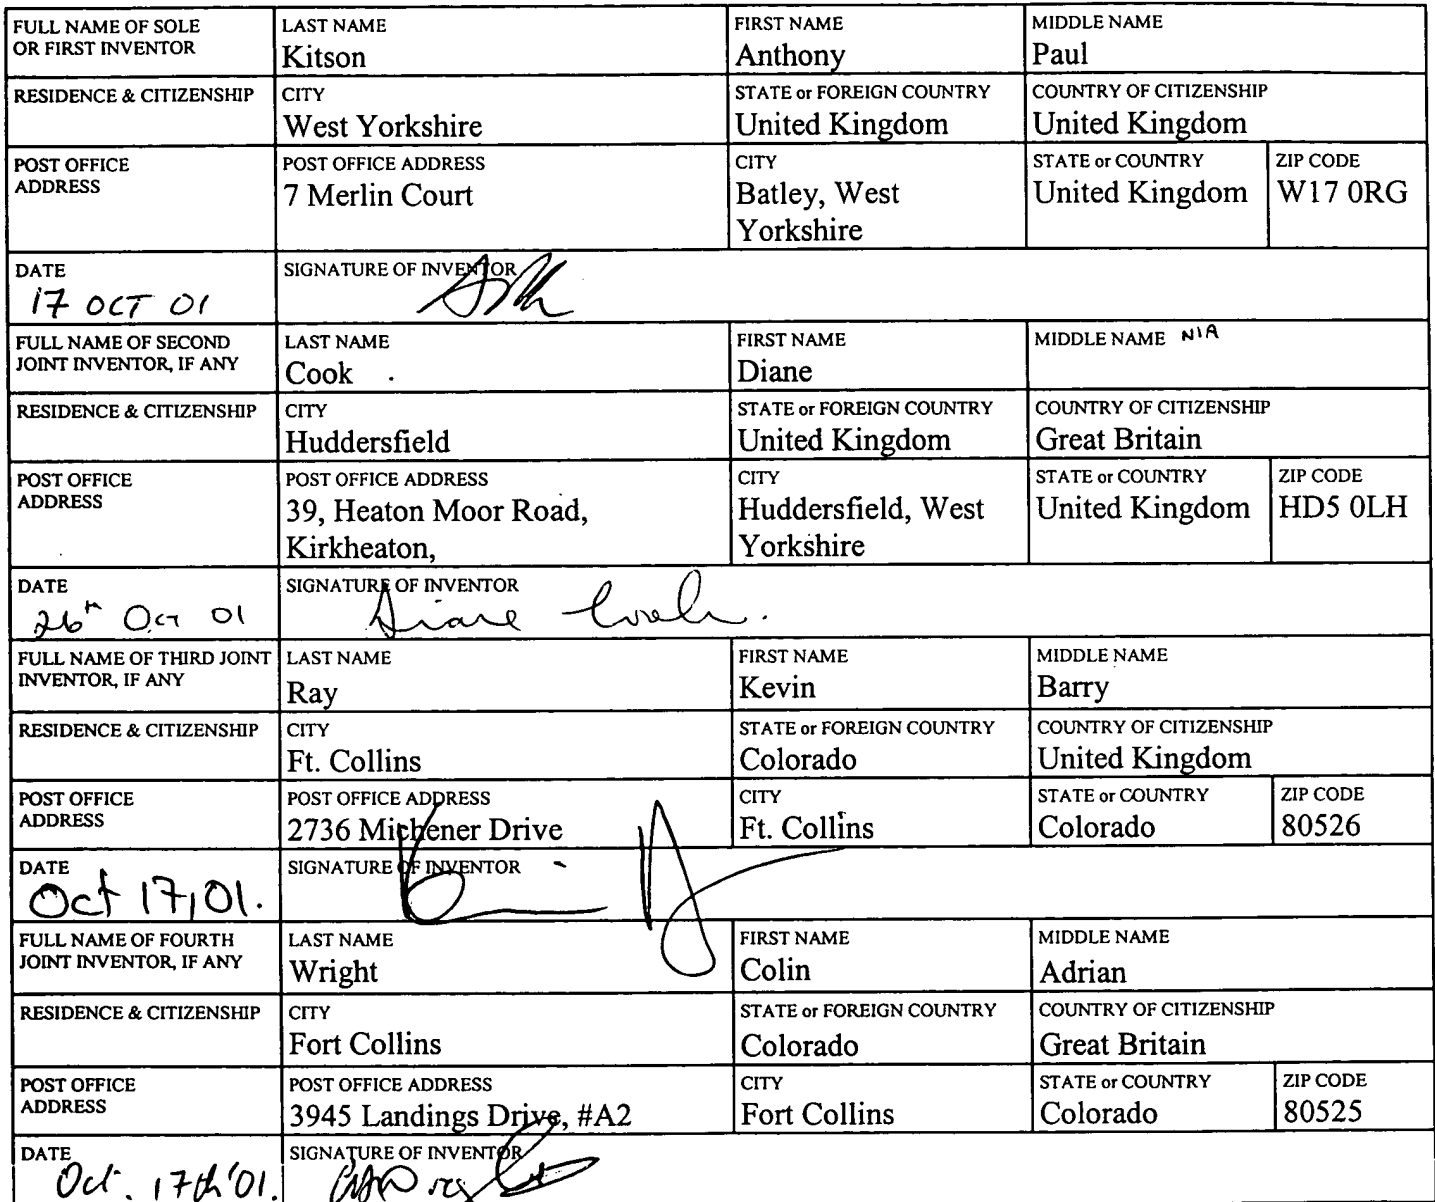 FULL NAME OF SOLE
OR FIRST INVENTOR
LAST NAME
Kitson
FIRST NAME
Anthony
MIDDLE NAME
Paul
RESIDENCE & CITIZENSHIP
CITY
West Yorkshire
STATE or FOREIGN COUNTRY
United Kingdom
COUNTRY OF CITIZENSHIP
United Kingdom
POST OFFICE
ADDRESS
POST OFFICE ADDRESS
7 Merlin Court
CITY
Batley, West
Yorkshire
STATE or COUNTRY
United Kingdom
ZIP CODE
W17 0RG
DATE
17 OCT 01
SIGNATURE OF INVENTOR
FULL NAME OF SECOND
JOINT INVENTOR, IF ANY
LAST NAME
Cook
FIRST NAME
Diane
MIDDLE NAME N/A
RESIDENCE & CITIZENSHIP
CITY
Huddersfield
STATE or FOREIGN COUNTRY
United Kingdom
COUNTRY OF CITIZENSHIP
Great Britain
POST OFFICE
ADDRESS
POST OFFICE ADDRESS
39, Heaton Moor Road,
Kirkheaton,
CITY
Huddersfield, West
Yorkshire
STATE or COUNTRY
United Kingdom
ZIP CODE
HD5 0LH
DATE
26th Oct 01
SIGNATURE OF INVENTOR
Diane Cook.
FULL NAME OF THIRD JOINT
INVENTOR, IF ANY
LAST NAME
Ray
FIRST NAME
Kevin
MIDDLE NAME
Barry
RESIDENCE & CITIZENSHIP
CITY
Ft. Collins
STATE or FOREIGN COUNTRY
Colorado
COUNTRY OF CITIZENSHIP
United Kingdom
POST OFFICE
ADDRESS
POST OFFICE ADDRESS
2736 Michener Drive
CITY
Ft. Collins
STATE or COUNTRY
Colorado
ZIP CODE
80526
DATE
Oct 17, 01.
SIGNATURE OF INVENTOR
FULL NAME OF FOURTH
JOINT INVENTOR, IF ANY
LAST NAME
Wright
FIRST NAME
Colin
MIDDLE NAME
Adrian
RESIDENCE & CITIZENSHIP
CITY
Fort Collins
STATE or FOREIGN COUNTRY
Colorado
COUNTRY OF CITIZENSHIP
Great Britain
POST OFFICE
ADDRESS
POST OFFICE ADDRESS
3945 Landings Drive, #A2
CITY
Fort Collins
STATE or COUNTRY
Colorado
ZIP CODE
80525
DATE
Oct. 17th '01.
SIGNATURE OF INVENTOR